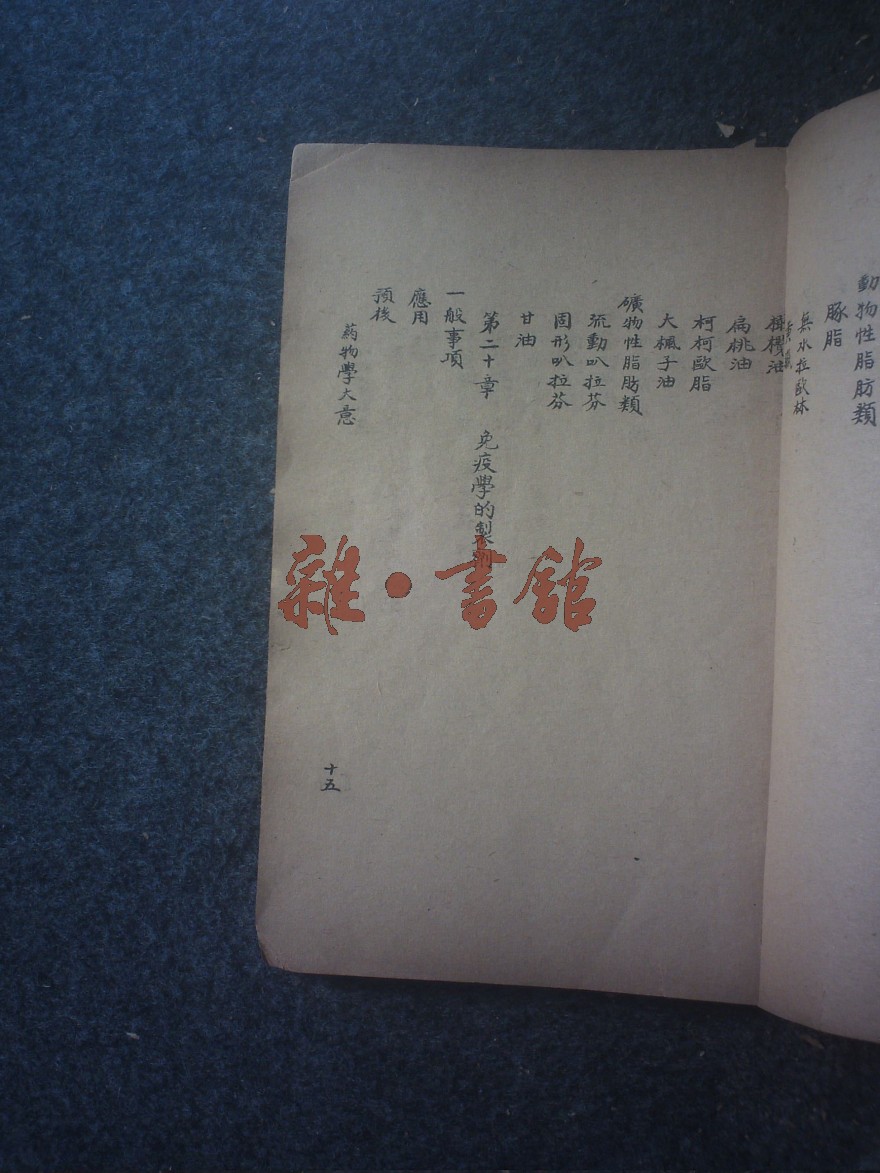 動物性脂肪類
豚脂
無水拉歐林
油
扁桃油
柯柯歐脂
大楓子油
礦物性脂肪類
流動叭拉芬
固形叭拉芬
甘油
第二十章 免疫學的製劑
一般事項
應用
預後
药物學大意
十五
雜·書館